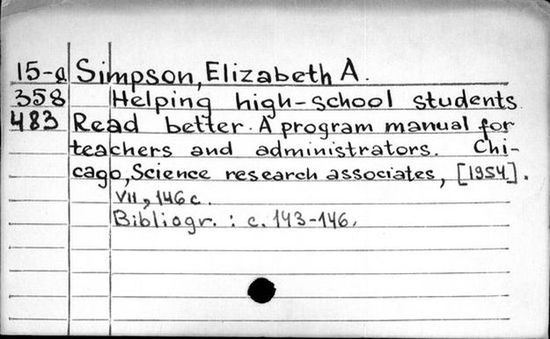 15-a Simpson, Elizabeth A.
358 Helping high-school students
483 Read better. A program manual for
teachers and administrators. Chi-
cago, Science research associates, [1954].
VII, 146 c.
Bibliogr. : c. 143-146.